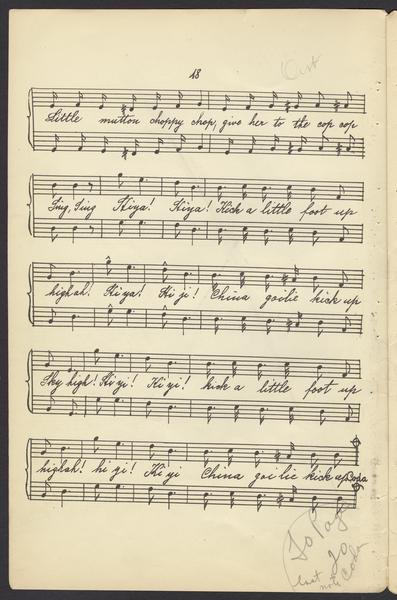 Out
18
Little mutton choppy chop, give her to the cop cop
Sing, Sing Hiya! Hiya! Kick a little foot up
highah! Hi ya! Hi ji! China goilie kick up
Sky high! Hi yi! Hi yi! kick a little foot up
highah! hi yi! Hi yi China goi lie kick up Coda
To Page
20
last note Coda